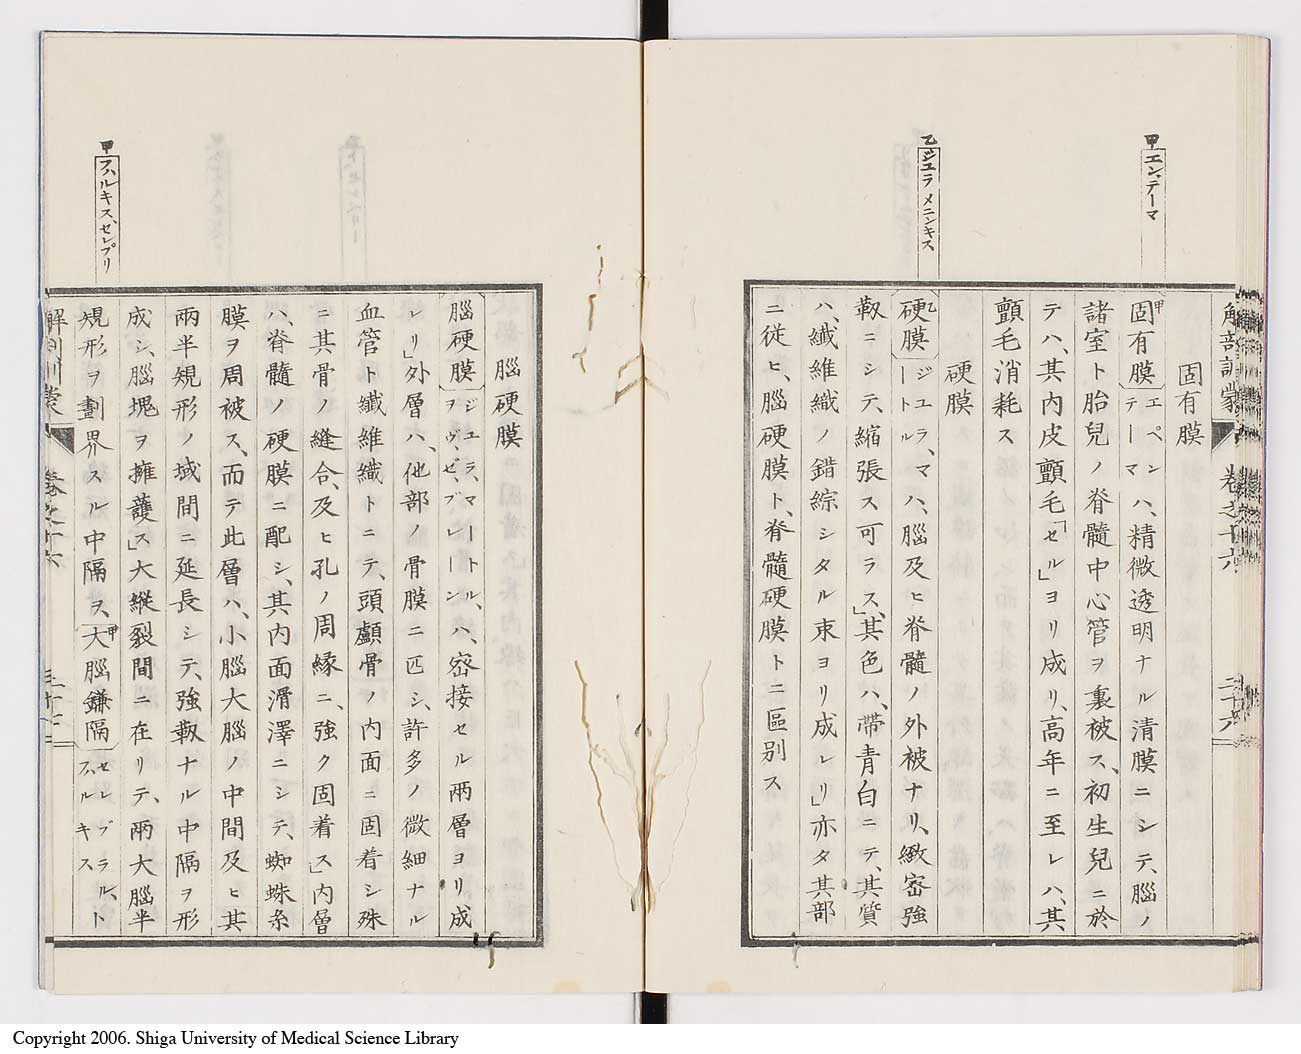 甲エンデーマ
乙ジュラメニンキス
解剖訓蒙 卷之十六 二十六
固有膜
甲固有膜エペンデーマハ、精微透明ナル清膜ニシテ、腦ノ
諸室ト胎兒ノ脊髓中心管ヲ裏被ス、初生兒ニ於
テハ、其内皮顫毛「セル」ヨリ成リ、高年ニ至レハ、其
顫毛消耗ス
硬膜
乙硬膜ジユラ、マートルハ、腦及ヒ脊髓ノ外被ナリ、緻密強
靱ニシテ、縮張ス可ラス」、其色ハ、帶青白ニテ、其質
ハ、纖維織ノ錯綜シタル束ヨリ成レリ」亦タ其部
ニ從ヒ、腦硬膜ト、脊髓硬膜トニ區別ス
甲フハルキス、セレプリ
腦硬膜
腦硬膜ジユラ、マートル、ハ、密接セル兩層ヨリ成
レリ」外層ハ、他部ノ骨膜ニ匹シ、許多ノ微細ナル
血管ト纖維織トニテ、頭顱骨ノ内面ニ固着シ殊
ニ其骨ノ縫合、及ヒ孔ノ周縁ニ、強ク固着ス」内層
ハ、脊髓ノ硬膜ニ配シ、其内面滑澤ニシテ、蜘蛛糸
膜ヲ周被ス、而テ此層ハ、小腦大腦ノ中間及ヒ其
兩半規形ノ域間ニ延長シテ、強靱ナル中隔ヲ形
成シ、腦塊ヲ擁護ス」大縱裂間ニ在リテ、兩大腦半
規形ヲ劃界スル中隔ヲ、甲大腦鎌隔セレブラル、フハルキスト
解剖訓蒙 卷之十六